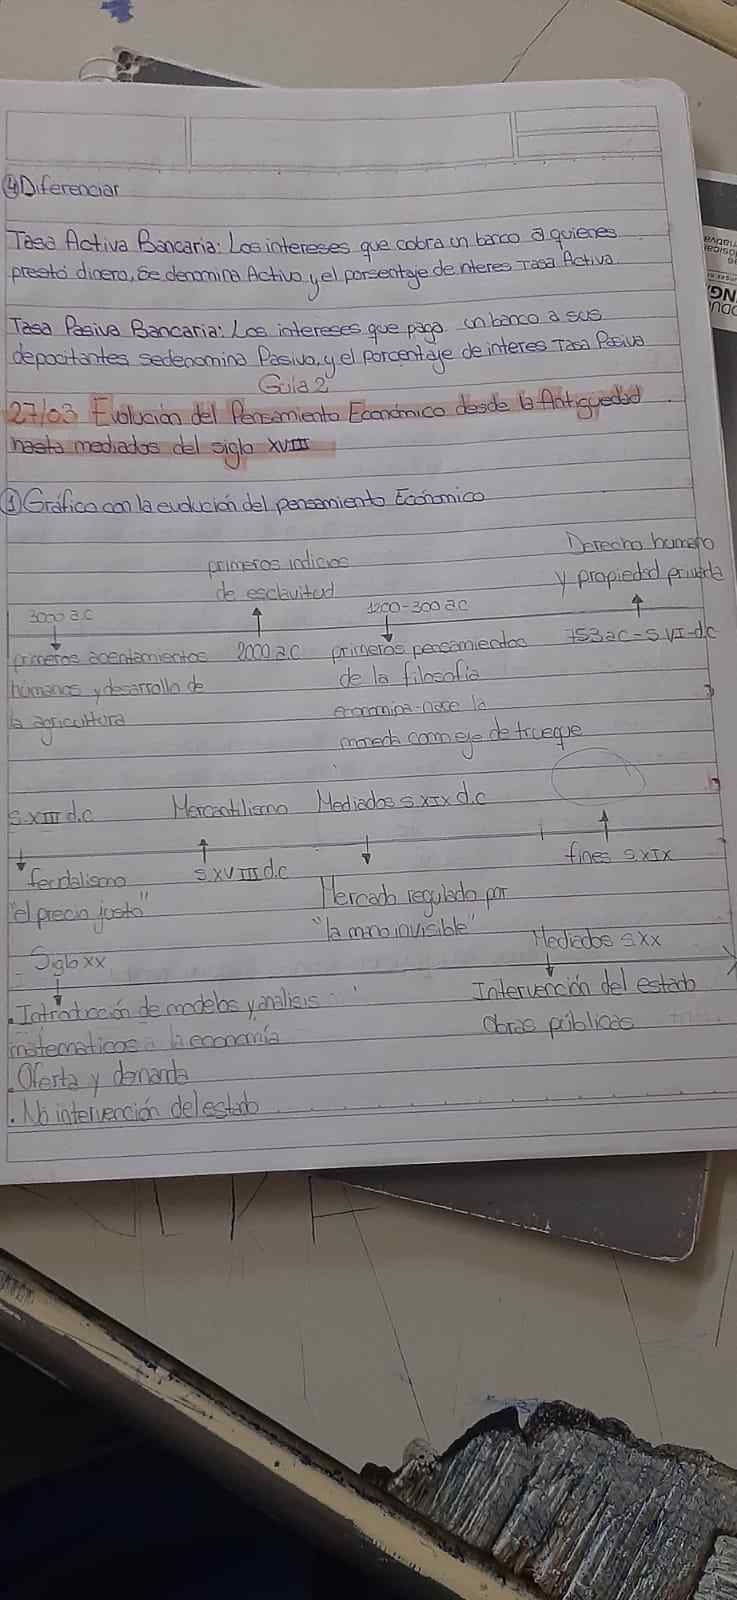 ④ Diferenciar
Tasa Activa Bancaria: Los intereses que cobra un banco a quienes
prestó dinero, se denomina Activo y el porsentaje de interes Tasa Activa.
Tasa Pasiva Bancaria: Los intereses que paga un banco a sus
depocitantes se denomina Pasivo, y el porcentaje de interes Tasa Pasiva
Guía 2
27/03 Evolución del Pensamiento Económico desde la Antiguedad
hasta mediados del siglo XVIII
① Gráfico con la evolución del pensamiento Económico
Derecho humano
y propiedad privada
primeros indicios
de esclavitud
3000 a.C
1200-300 a.C
primeros asentamientos
humanos y desarrollo de
la agricultura
2000 a.C
primeros pensamientos
de la filosofía
economina-nace la
moneda como eje de trueque
753 a.C - S. VI - d.C
S. XIII d.C
Mercantilismo
Mediados s. XIX d.C
feudalismo
"el precio justo"
S. XVIII d.C
Mercado regulado por
"la mano invisible"
fines s. XIX
Siglo XX
Mediados s. XX
. Introducción de modelos y analisis
matematicos a la economía
. Oferta y demanda
. No intervención del estado
Intervención del estado
Obras públicas